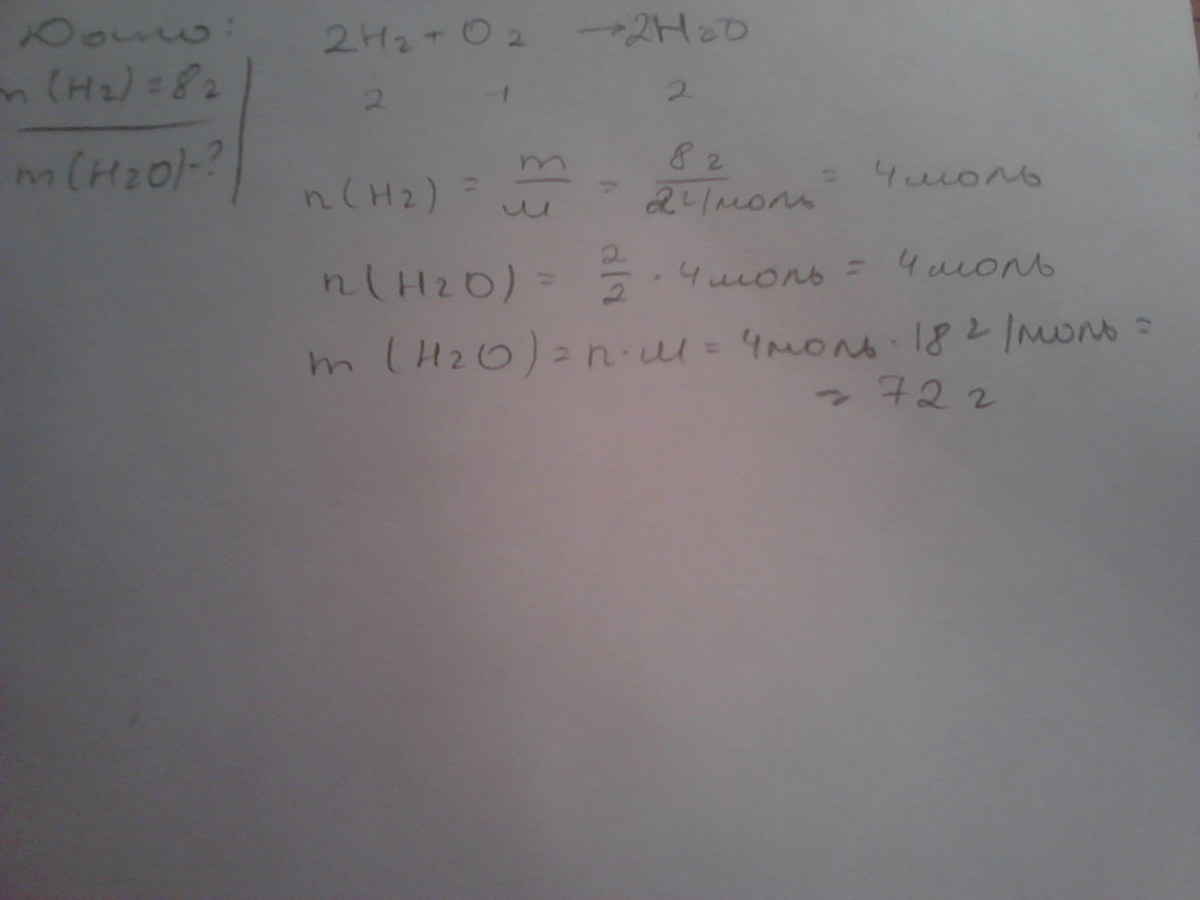 Дано:
m(H2) = 8г
m(H2O)-?
2H2 + O2 → 2H2O
2 1 2
n(H2) = m/M = 8г/2г/моль = 4моль
n(H2O) = 2/2 · 4моль = 4моль
m (H2O) = n·M = 4моль · 18 г/моль =
= 72 г